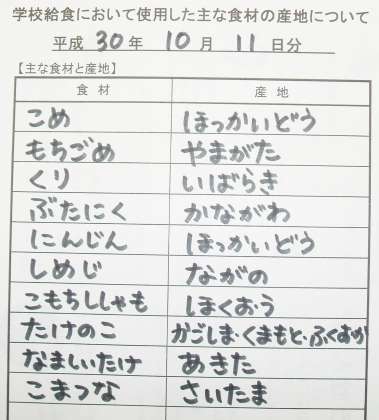 学校給食において使用した主な食材の産地について
平成 30 年 10 月 11 日分
【主な食材と産地】
食材 産地
こめ ほっかいどう
もちごめ やまがた
くり いばらき
ぶたにく かながわ
にんじん ほっかいどう
しめじ ながの
こもちししゃも ほくおう
たけのこ かごしま・くまもと・ふくおか
なましいたけ あきた
こまつな さいたま